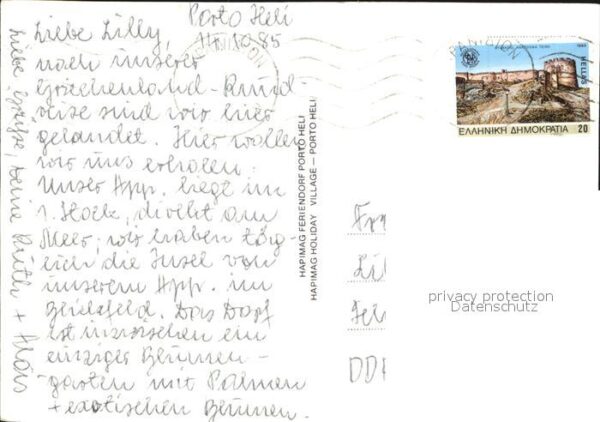 Porto Heli
11.10.85
Liebe Lilly,
nach unserer
Griechenland-Rund-
reise sind wir hier
gelandet. Hier wollen
wir uns erholen.
Unser App. liegt im
1. Stock, direkt am
Meer; wir haben täg-
lich die Insel von
unserem App. im
Blickfeld. Das Dorf
ist inzwischen ein
einziger Blumen-
garten mit Palmen
+ exotischen Blumen.
Liebe Grüße, Deine Ruth + Alois
HAPIMAG FERIENDORF PORTO HELI
HAPIMAG HOLIDAY VILLAGE – PORTO HELI
HELLAS
ΕΛΛΗΝΙΚΗ ΔΗΜΟΚΡΑΤΙΑ 20
privacy protection
Datenschutz
DD